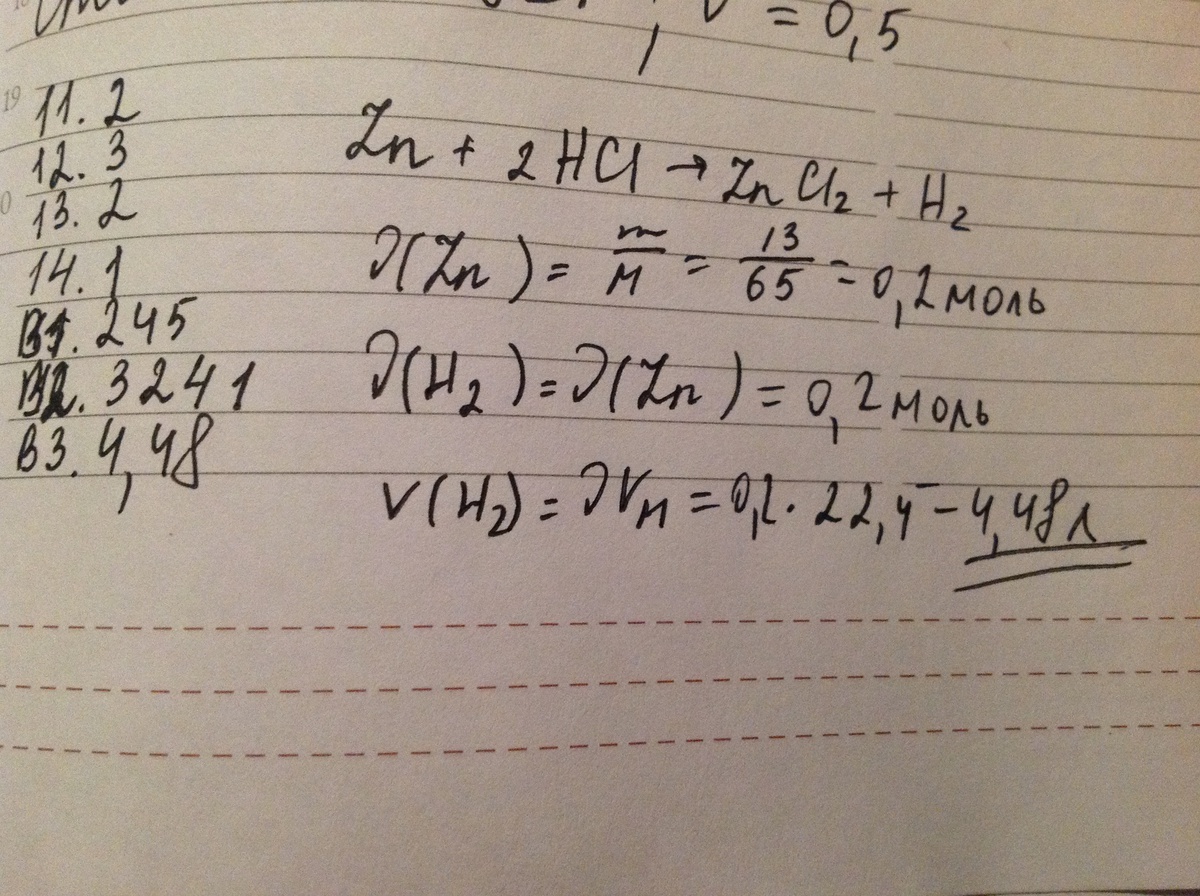 = 0,5
11. 2
12. 3
13. 2
14. 1
В1. 245
В2. 3241
В3. 4,48
Zn + 2HCl → ZnCl₂ + H₂
ν(Zn) = m/M = 13/65 = 0,2 моль
ν(H₂) = ν(Zn) = 0,2 моль
V(H₂) = νVм = 0,2 · 22,4 = 4,48 л